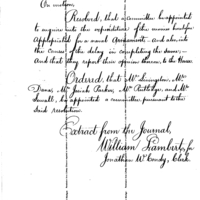 On motion,
Resolved, that a committee be appointed
to enquire into the expenditure of the monies heretofore
appropriated for a naval Armament; and also, into
the causes of the delay in completing the same;
And that they report their opinion thereon, to the House.
Ordered, that Mr Livingston, Mr
Dana, Mr Josiah Parker, Mr Rutledge, and Mr
Sewall, be appointed a committee pursuant to the
said resolution.
Extract from the Journal,
William Lambert, for
Jonathan W. Condy, Clerk.